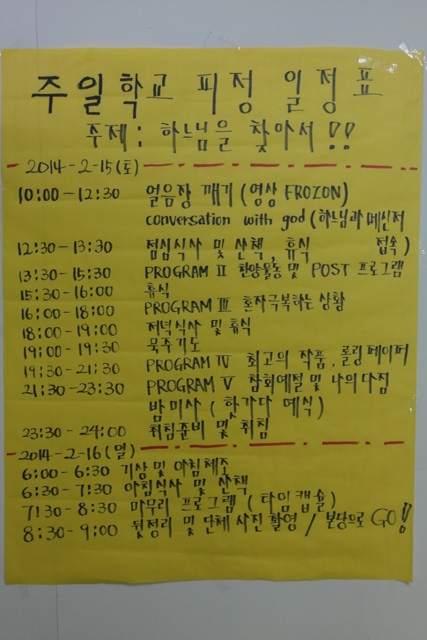 주일학교 피정 일정표
주제 : 하느님을 찾아서 !!
2014-2-15(토)
10:00 - 12:30 얼음장 깨기 (영상 FROZON)
conversation with god (하느님과 메신저
12:30 - 13:30 점심식사 및 산책, 휴식 접속)
13:30 - 15:30 PROGRAM II 찬양율동 및 POST 프로그램
15:30 - 16:00 휴식
16:00 - 18:00 PROGRAM III 혼자극복하는 상황
18:00 - 19:00 저녁식사 및 휴식
19:00 - 19:30 묵주기도
19:30 - 21:30 PROGRAM IV 최고의 작품, 롤링페이퍼
21:30 - 23:30 PROGRAM V 참회예절 및 나의다짐
밤미사 (핫가다 예식)
23:30 - 24:00 취침준비 및 취침
2014-2-16(일)
6:00 - 6:30 기상 및 아침체조
6:30 - 7:30 아침식사 및 산책
7:30 - 8:30 마무리 프로그램 (타임캡슐)
8:30 - 9:00 뒷정리 및 단체 사진촬영 / 본당으로 GO!!